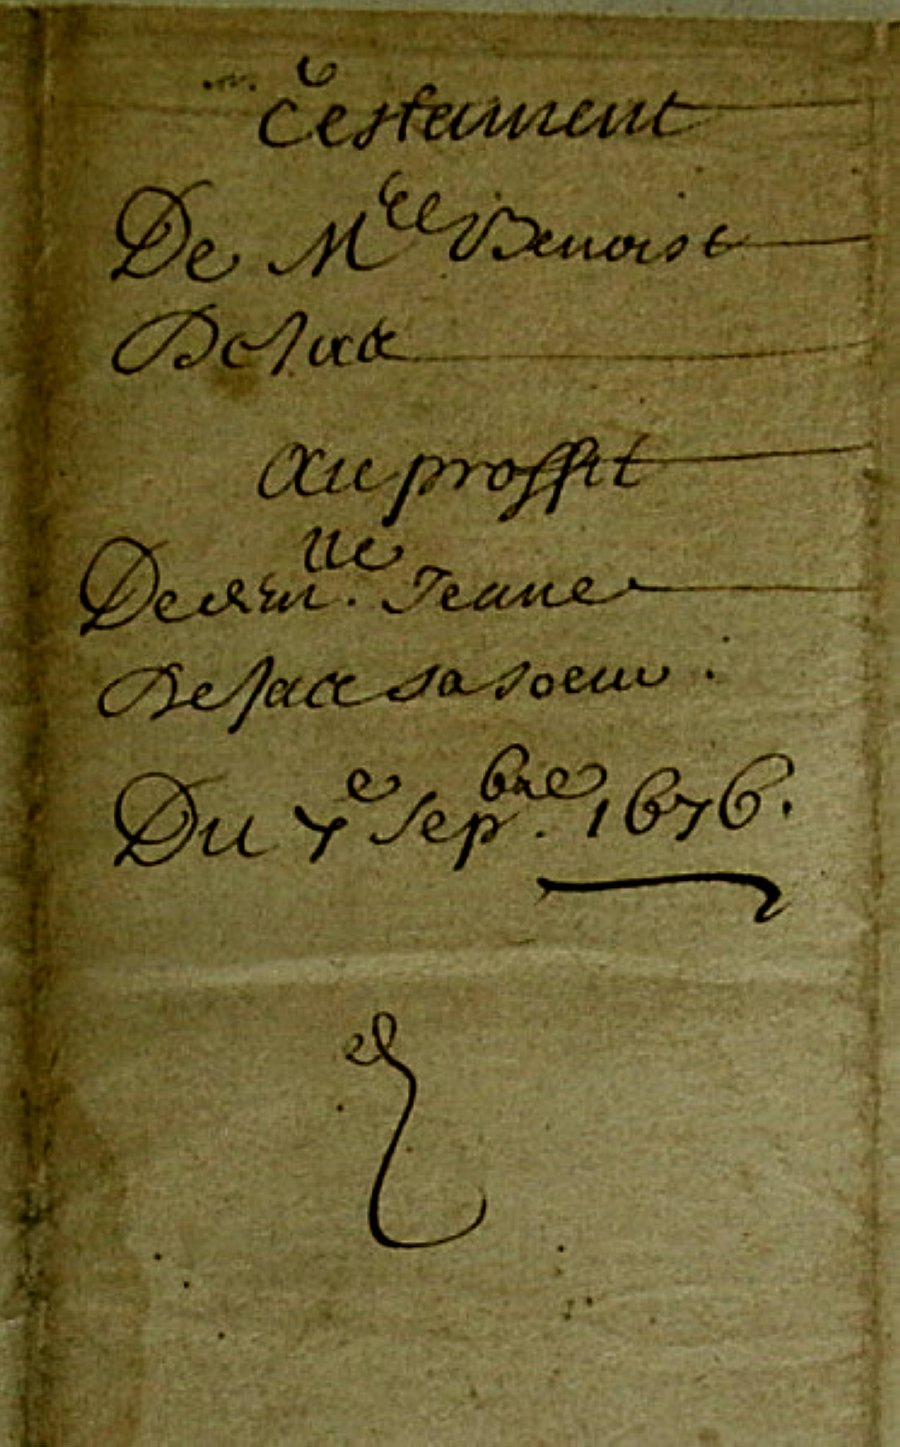 Testament
De Mre Benoist
Besace
Au proffit
De dem.lle Jeanne
Besace sa soeur.
Du 7e Sepbre. 1676.